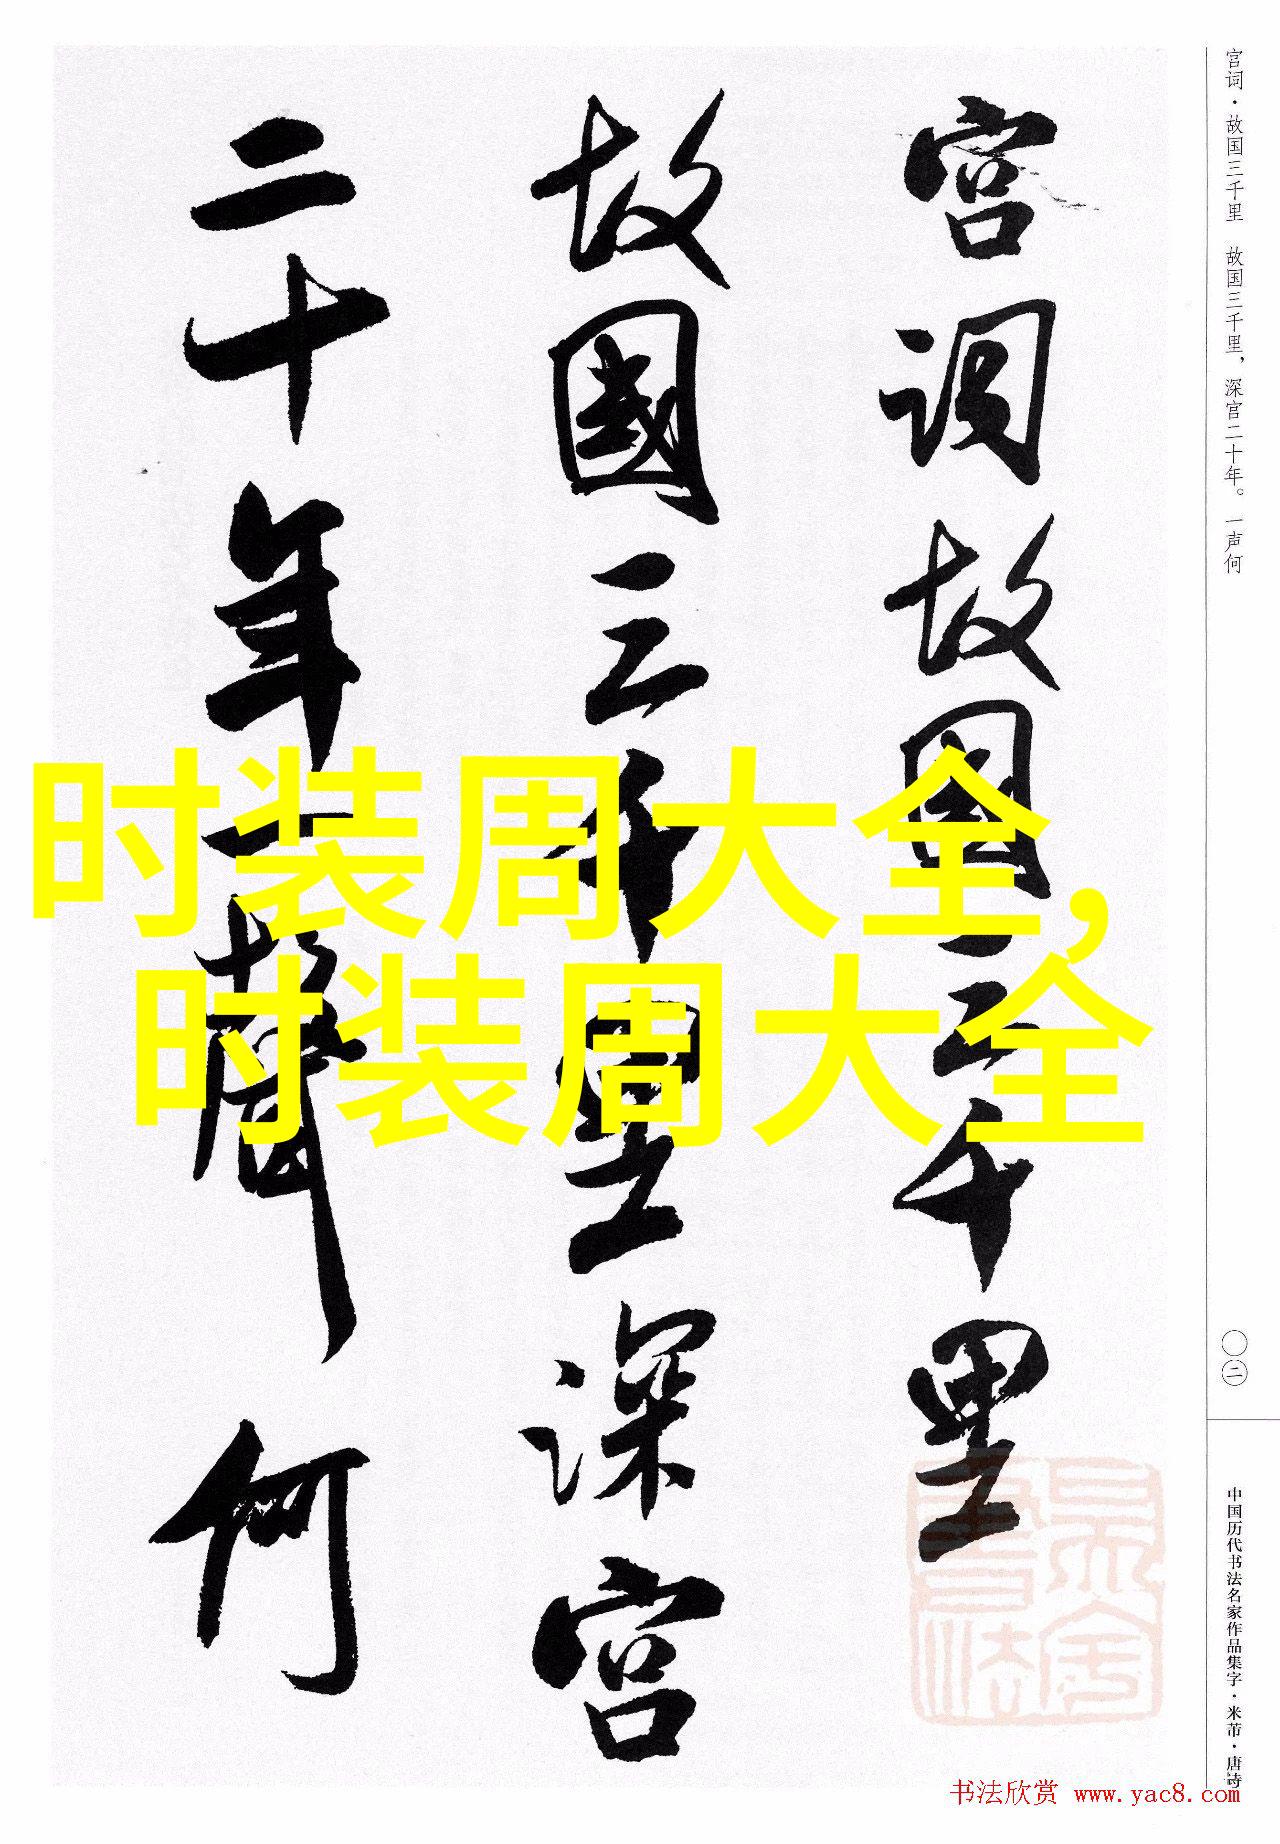 宫词·故国三千里 故国三千里，深宫二十年。一声何
宫词故国三千里
故國三千里深宫
二十年一聲何
时装周大全，
时装周大全
〇二
中国历代书法名家作品集字·米芾·唐诗
书法欣赏 www.yac8.com